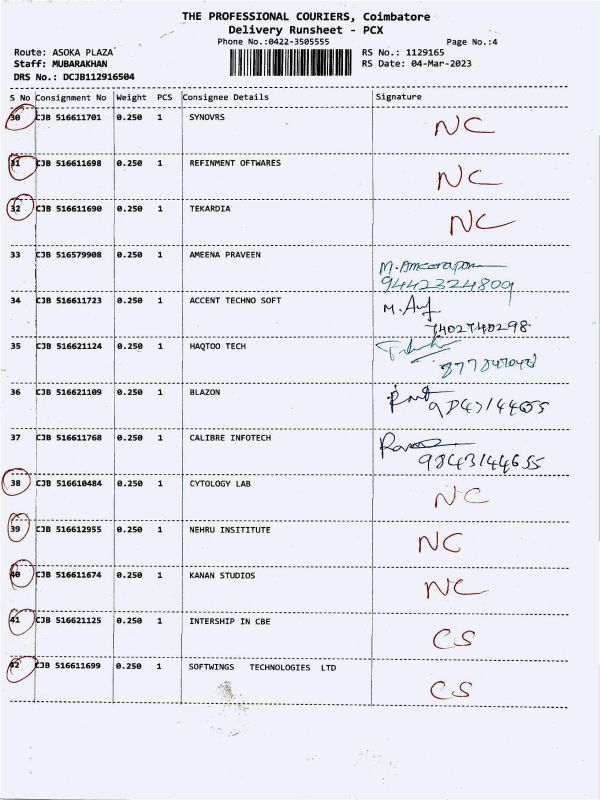 THE PROFESSIONAL COURIERS, Coimbatore
Delivery Runsheet - PCX
Phone No.:0422-3505555 Page No.:4
Route: ASOKA PLAZA RS No.: 1129165
Staff: MUBARAKHAN RS Date: 04-Mar-2023
DRS No.: DCJB112916504
S No Consignment No Weight PCS Consignee Details Signature
30 CJB 516611701 0.250 1 SYNOVRS NC
31 CJB 516611698 0.250 1 REFINMENT OFTWARES NC
32 CJB 516611690 0.250 1 TEKARDIA NC
33 CJB 516579908 0.250 1 AMEENA PRAVEEN
9442324809
34 CJB 516611723 0.250 1 ACCENT TECHNO SOFT M.
7402740298
35 CJB 516621124 0.250 1 HAQTOO TECH
36 CJB 516621109 0.250 1 BLAZON
37 CJB 516611768 0.250 1 CALIBRE INFOTECH
9843144655
38 CJB 516610484 0.250 1 CYTOLOGY LAB NC
39 CJB 516612955 0.250 1 NEHRU INSITITUTE NC
40 CJB 516611674 0.250 1 KANAN STUDIOS NC
41 CJB 516621125 0.250 1 INTERSHIP IN CBE CS
42 CJB 516611699 0.250 1 SOFTWINGS TECHNOLOGIES LTD CS